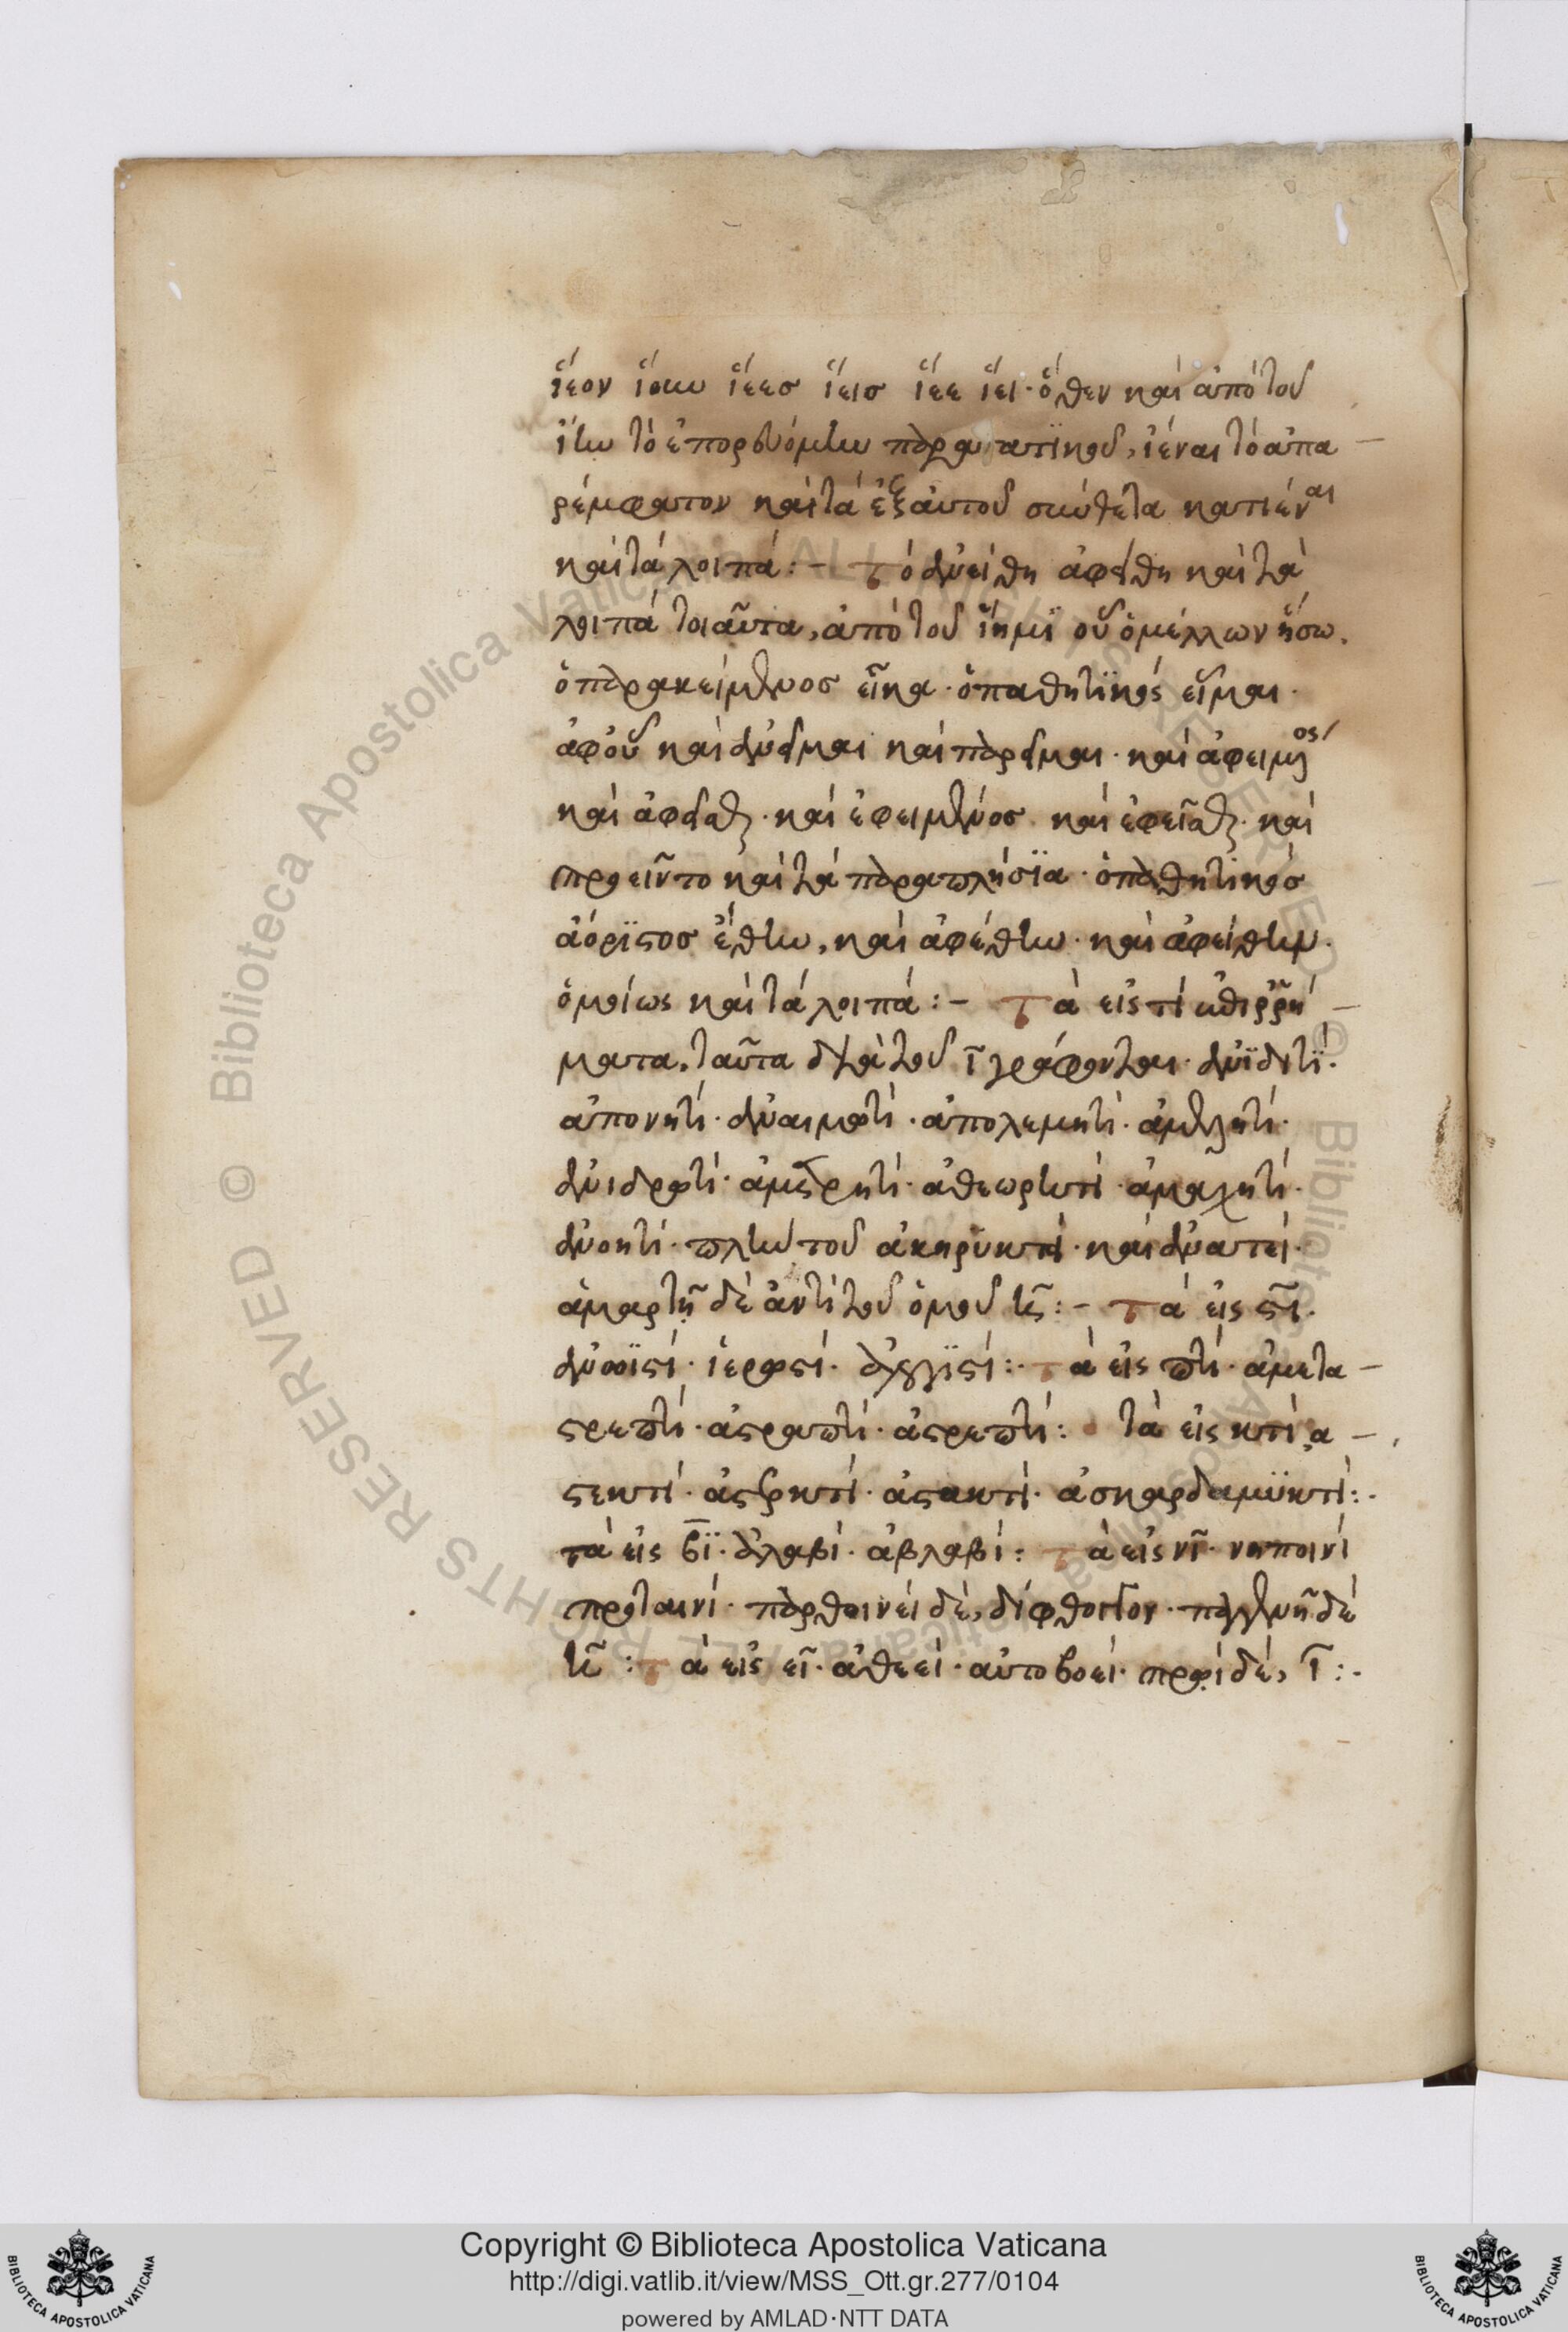 ἵεον ἵουν ἵεες ἵεις ἵεε ἵει· ὅθεν καὶ ἀπὸ τοῦ
ἴην τὸ ἐπορευόμην παρατατικοῦ, ἰέναι τὸ ἀπα-
ρέμφατον καὶ τὰ ἐξ αὐτοῦ σύνθετα κατιέναι
καὶ τὰ λοιπά:- τὸ ἀνείθη ἀφείθη καὶ τὰ
λοιπὰ τοιαῦτα, ἀπὸ τοῦ ἵημι οὗ ὁ μέλλων ἥσω.
ὁ παρακείμενος εἷκα· ὁ παθητικός εἷμαι·
ἀφ' οὗ καὶ ἀνεῖμαι καὶ παρεῖμαι· καὶ ἀφειμένος
καὶ ἀφεῖσθαι· καὶ ἐφειμένος καὶ ἐφεῖσθαι· καὶ
προεῖντο καὶ τὰ παραπλήσια· ὁ παθητικὸς
ἀόριστος ἕθην, καὶ ἀφέθην· καὶ ἀφείθην·
ὁμοίως καὶ τὰ λοιπά:- τὰ εἰς τί ἐπιρρή-
ματα, ταῦτα διὰ τοῦ ῖ γράφονται· ἀνιδιτί·
ἀπονητί· ἀναιμοτί· ἀπολεμητί· ἀμελητί·
ἀνιδρωτί· ἀμετρητί· ἀθεωρητί· ἀμαχητί·
ἀνοητί· πλὴν τοῦ ἀκηρυκτεί· καὶ ἀνατεί·
ἁμαρτῆ δὲ ἀντὶ τοῦ ὁμοῦ η̃:- τὰ εἰς στι·
ἀνωϊστί· ἱερωστί· ἀγελαστί:· τὰ εἰς πτί· ἀμετα-
στρεπτί· ἀστραπτί· ἀστρεπτί: τὰ εἰς κτί, ἀ-
στεκτί· ἀστακτί· ἀσκαρδαμυκτί:·
τὰ εἰς βϊ· ἀβλαβί: τὰ εἰς νῖ· νηποινί
πρυτανί· παρθοινεὶ δὲ, δίφθογγον· παγγενῆ δὲ
η̃: τὰ εἰς εῖ· ἀθεεί· αὐτοβοεί· πρωῒ δὲ, ῖ:·
Copyright © Biblioteca Apostolica Vaticana
http://digi.vatlib.it/view/MSS_Ott.gr.277/0104
powered by AMLAD·NTT DATA
BIBLIOTECA APOSTOLICA VATICANA
BIBLIOTECA APOSTOLICA VATICANA